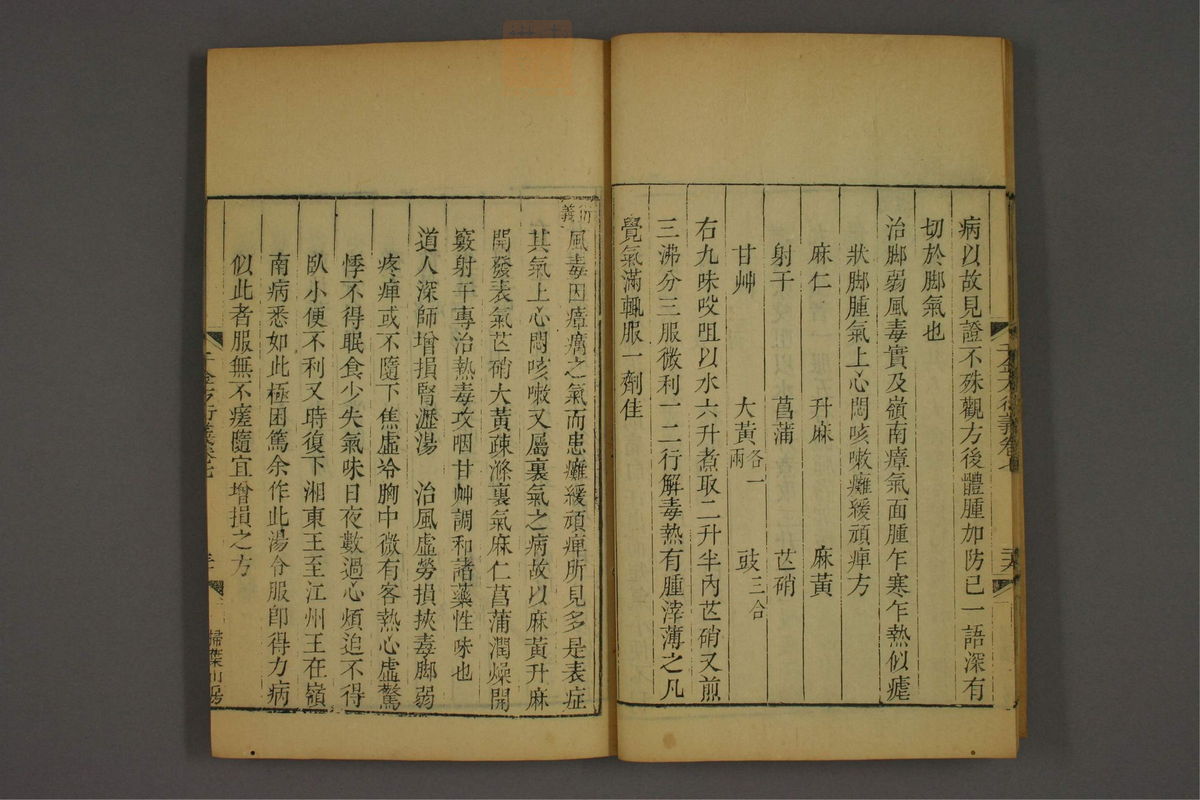 病以故見證不殊觀方後體腫加防己一語深有
切於脚氣也
治脚弱風毒實及嶺南瘴氣面腫乍寒乍熱似瘧
狀脚腫氣上心悶咳嗽癱緩頑痺方
麻仁 升麻 麻黃
射干 菖蒲 芒硝
甘艸 大黃各一兩 豉三合
右九味㕮咀以水六升煮取二升半內芒硝又煎
三沸分三服微利一二行解毒熱有腫滓薄之凡
覺氣滿輒服一劑佳
衍義
風毒因瘴癘之氣而患癱緩頑痺所見多是表症
其氣上心悶咳嗽又屬裏氣之病故以麻黃升麻
開發表氣芒硝大黃疎滌裏氣麻仁菖蒲潤燥開
竅射干專治熱毒攻咽甘艸調和諸藥性味也
道人深師增損腎瀝湯 治風虛勞損挾毒脚弱
疼痺或不隨下焦虛冷胸中微有客熱心虛驚
悸不得眠食少失氣味日夜數過心煩迫不得
臥小便不利又時復下湘東王至江州王在嶺
南病悉如此極困篤余作此湯令服卽得力病
似此者服無不瘥隨宜增損之方
千金方衍義卷七
掃葉山房